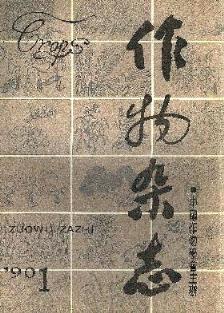 Crops
作物杂志
ZUOWU ZAZHI
中国作物学会主办